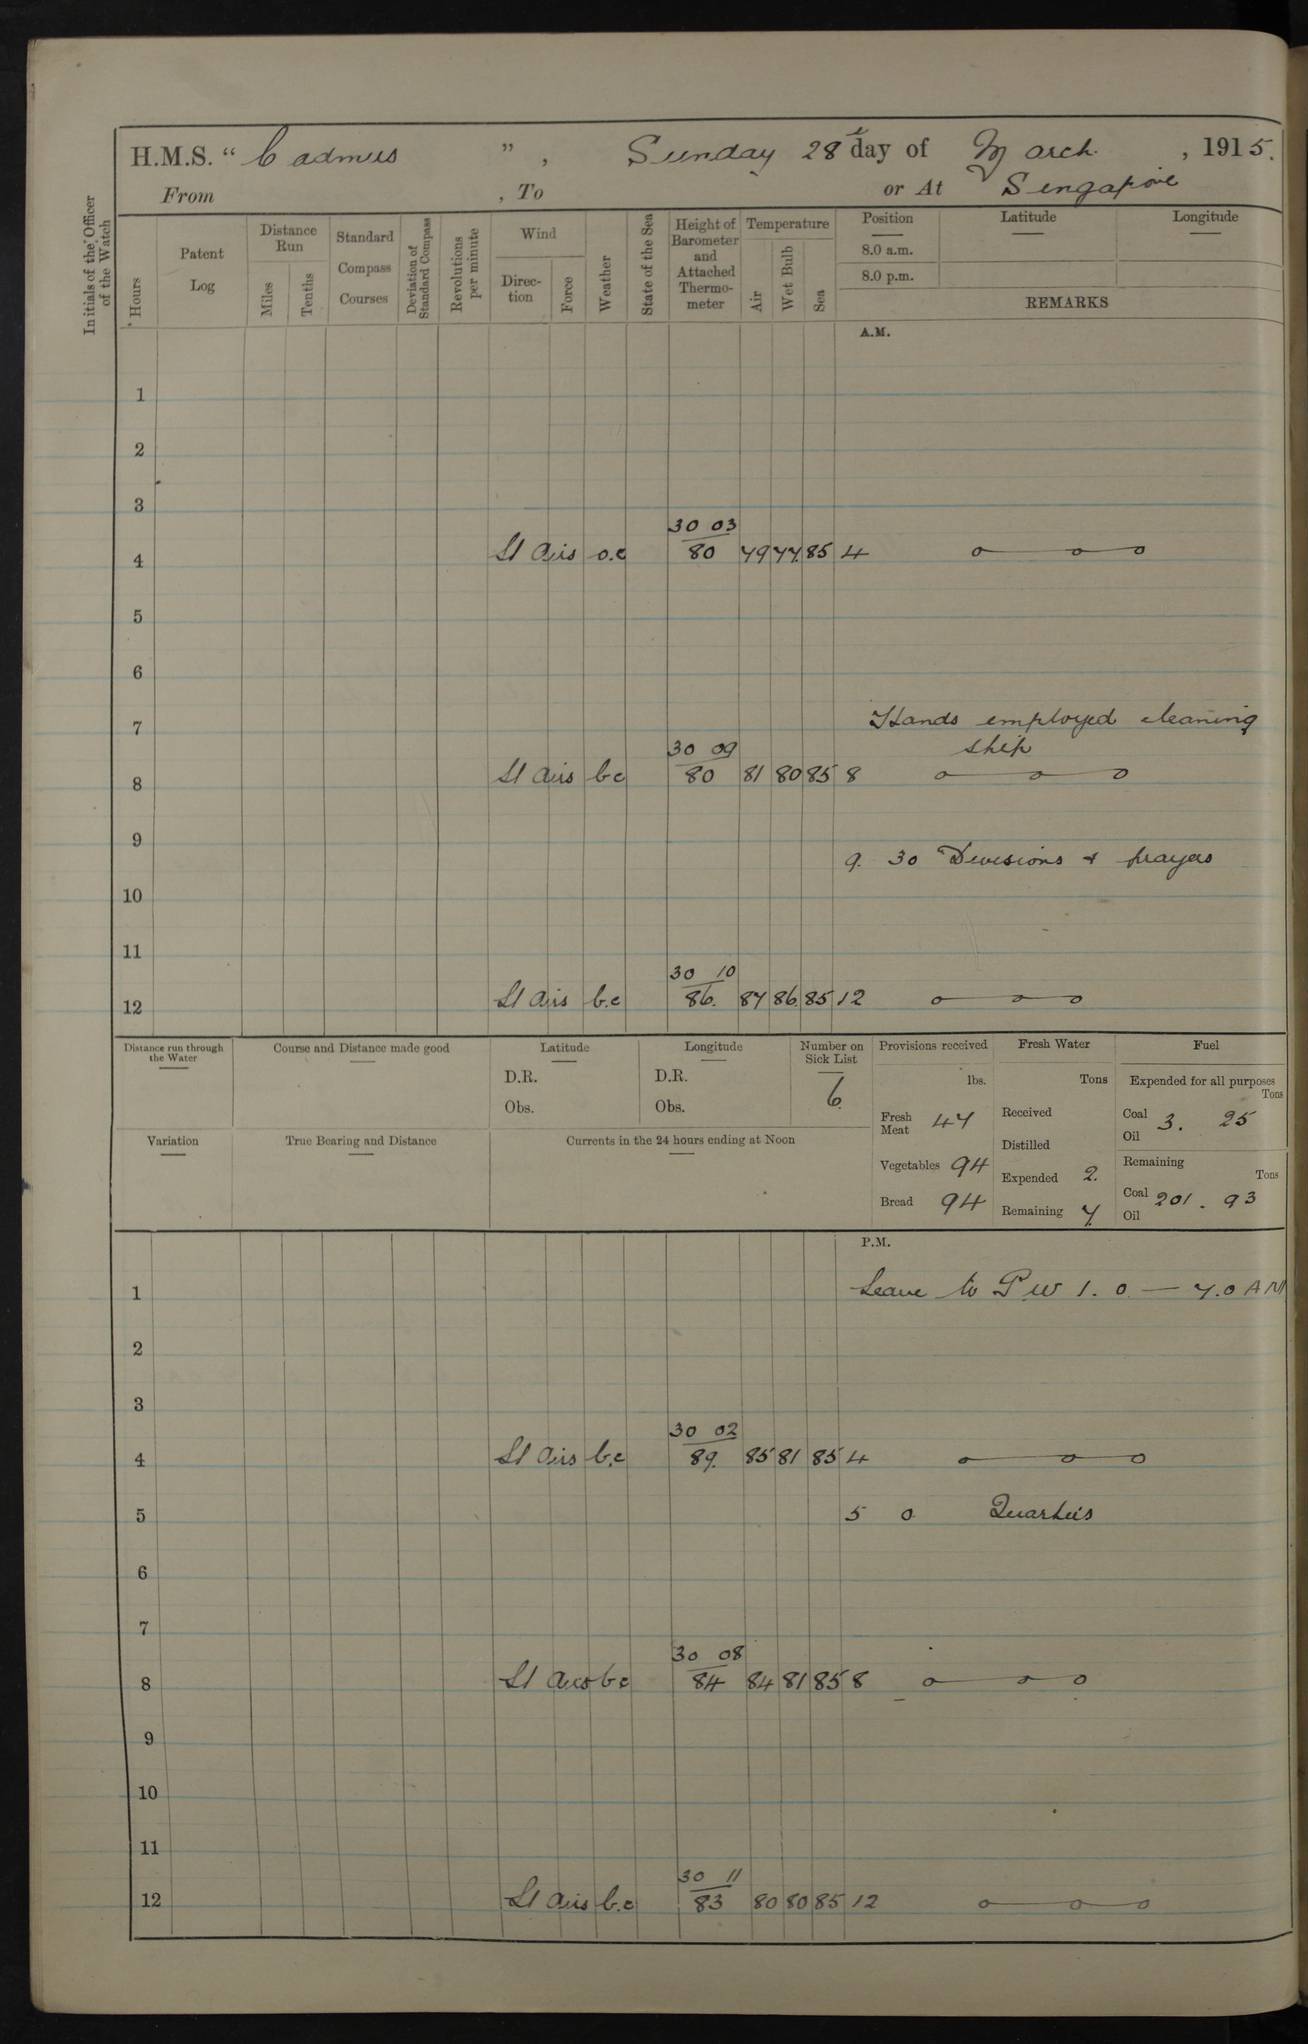 H.M.S. "Cadmus", Sunday 28th day of March, 1915.
From , To or At Singapore
Initials of the Officer of the Watch
Hours
Patent Log
Distance Run
Miles
Tenths
Standard Compass Courses
Deviation of Standard Compass
Revolutions per minute
Wind
Direction
Force
Weather
State of the Sea
Height of Barometer and Attached Thermometer
Temperature
Air
Wet Bulb
Sea
Position
Latitude
Longitude
8.0 a.m.
8.0 p.m.
REMARKS
A.M.
1
2
3
30 03
4 Lt Airs o.c 80 79 77 85 4
5
6
7 Hands employed cleaning
30 09 ship
8 Lt Airs bc 80 81 80 85 8
9
9. 30 Divisions & prayers
10
11
30 10
12 Lt Airs b.c 86. 87 86 85 12
Distance run through the Water
Course and Distance made good
Latitude
D.R.
Obs.
Longitude
D.R.
Obs.
Number on Sick List
6.
Provisions received
lbs.
Fresh Meat 47
Vegetables 94
Bread 94
Fresh Water
Tons
Received
Distilled
Expended 2.
Remaining 7.
Fuel
Expended for all purposes
Tons
Coal 3. 25
Oil
Remaining
Tons
Coal 201. 93
Oil
Variation
True Bearing and Distance
Currents in the 24 hours ending at Noon
P.M.
1 Leave to P W 1. 0. — 7.0 AM
2
3
30 02
4 Lt Airs b.c 89. 85 81 85 4
5 5 0 Quarters
6
7
30 08
8 Lt Airs b c 84 84 81 85 8
9
10
11
30 11
12 Lt Airs b.c 83 80 80 85 12